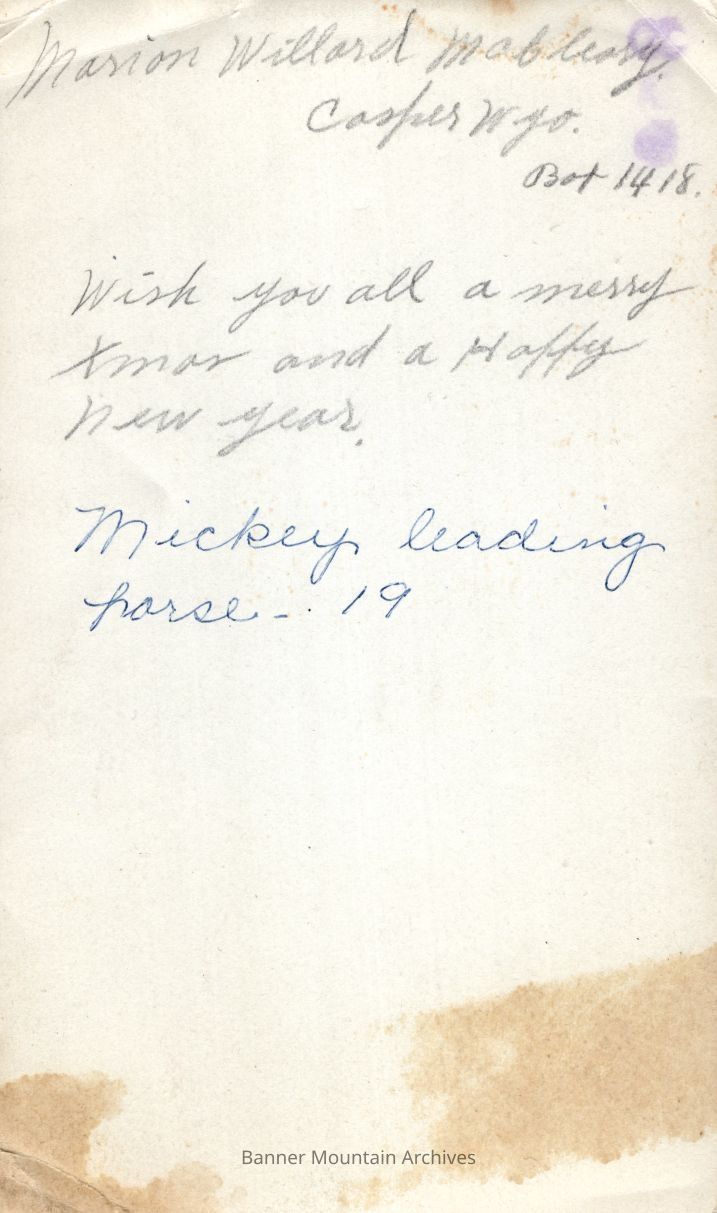 Marion Willard
Casper Wyo.
Box 1418.
Wish you all a merry
Xmas and a Happy
New year.
Mickey leading
horse - 19
Banner Mountain Archives